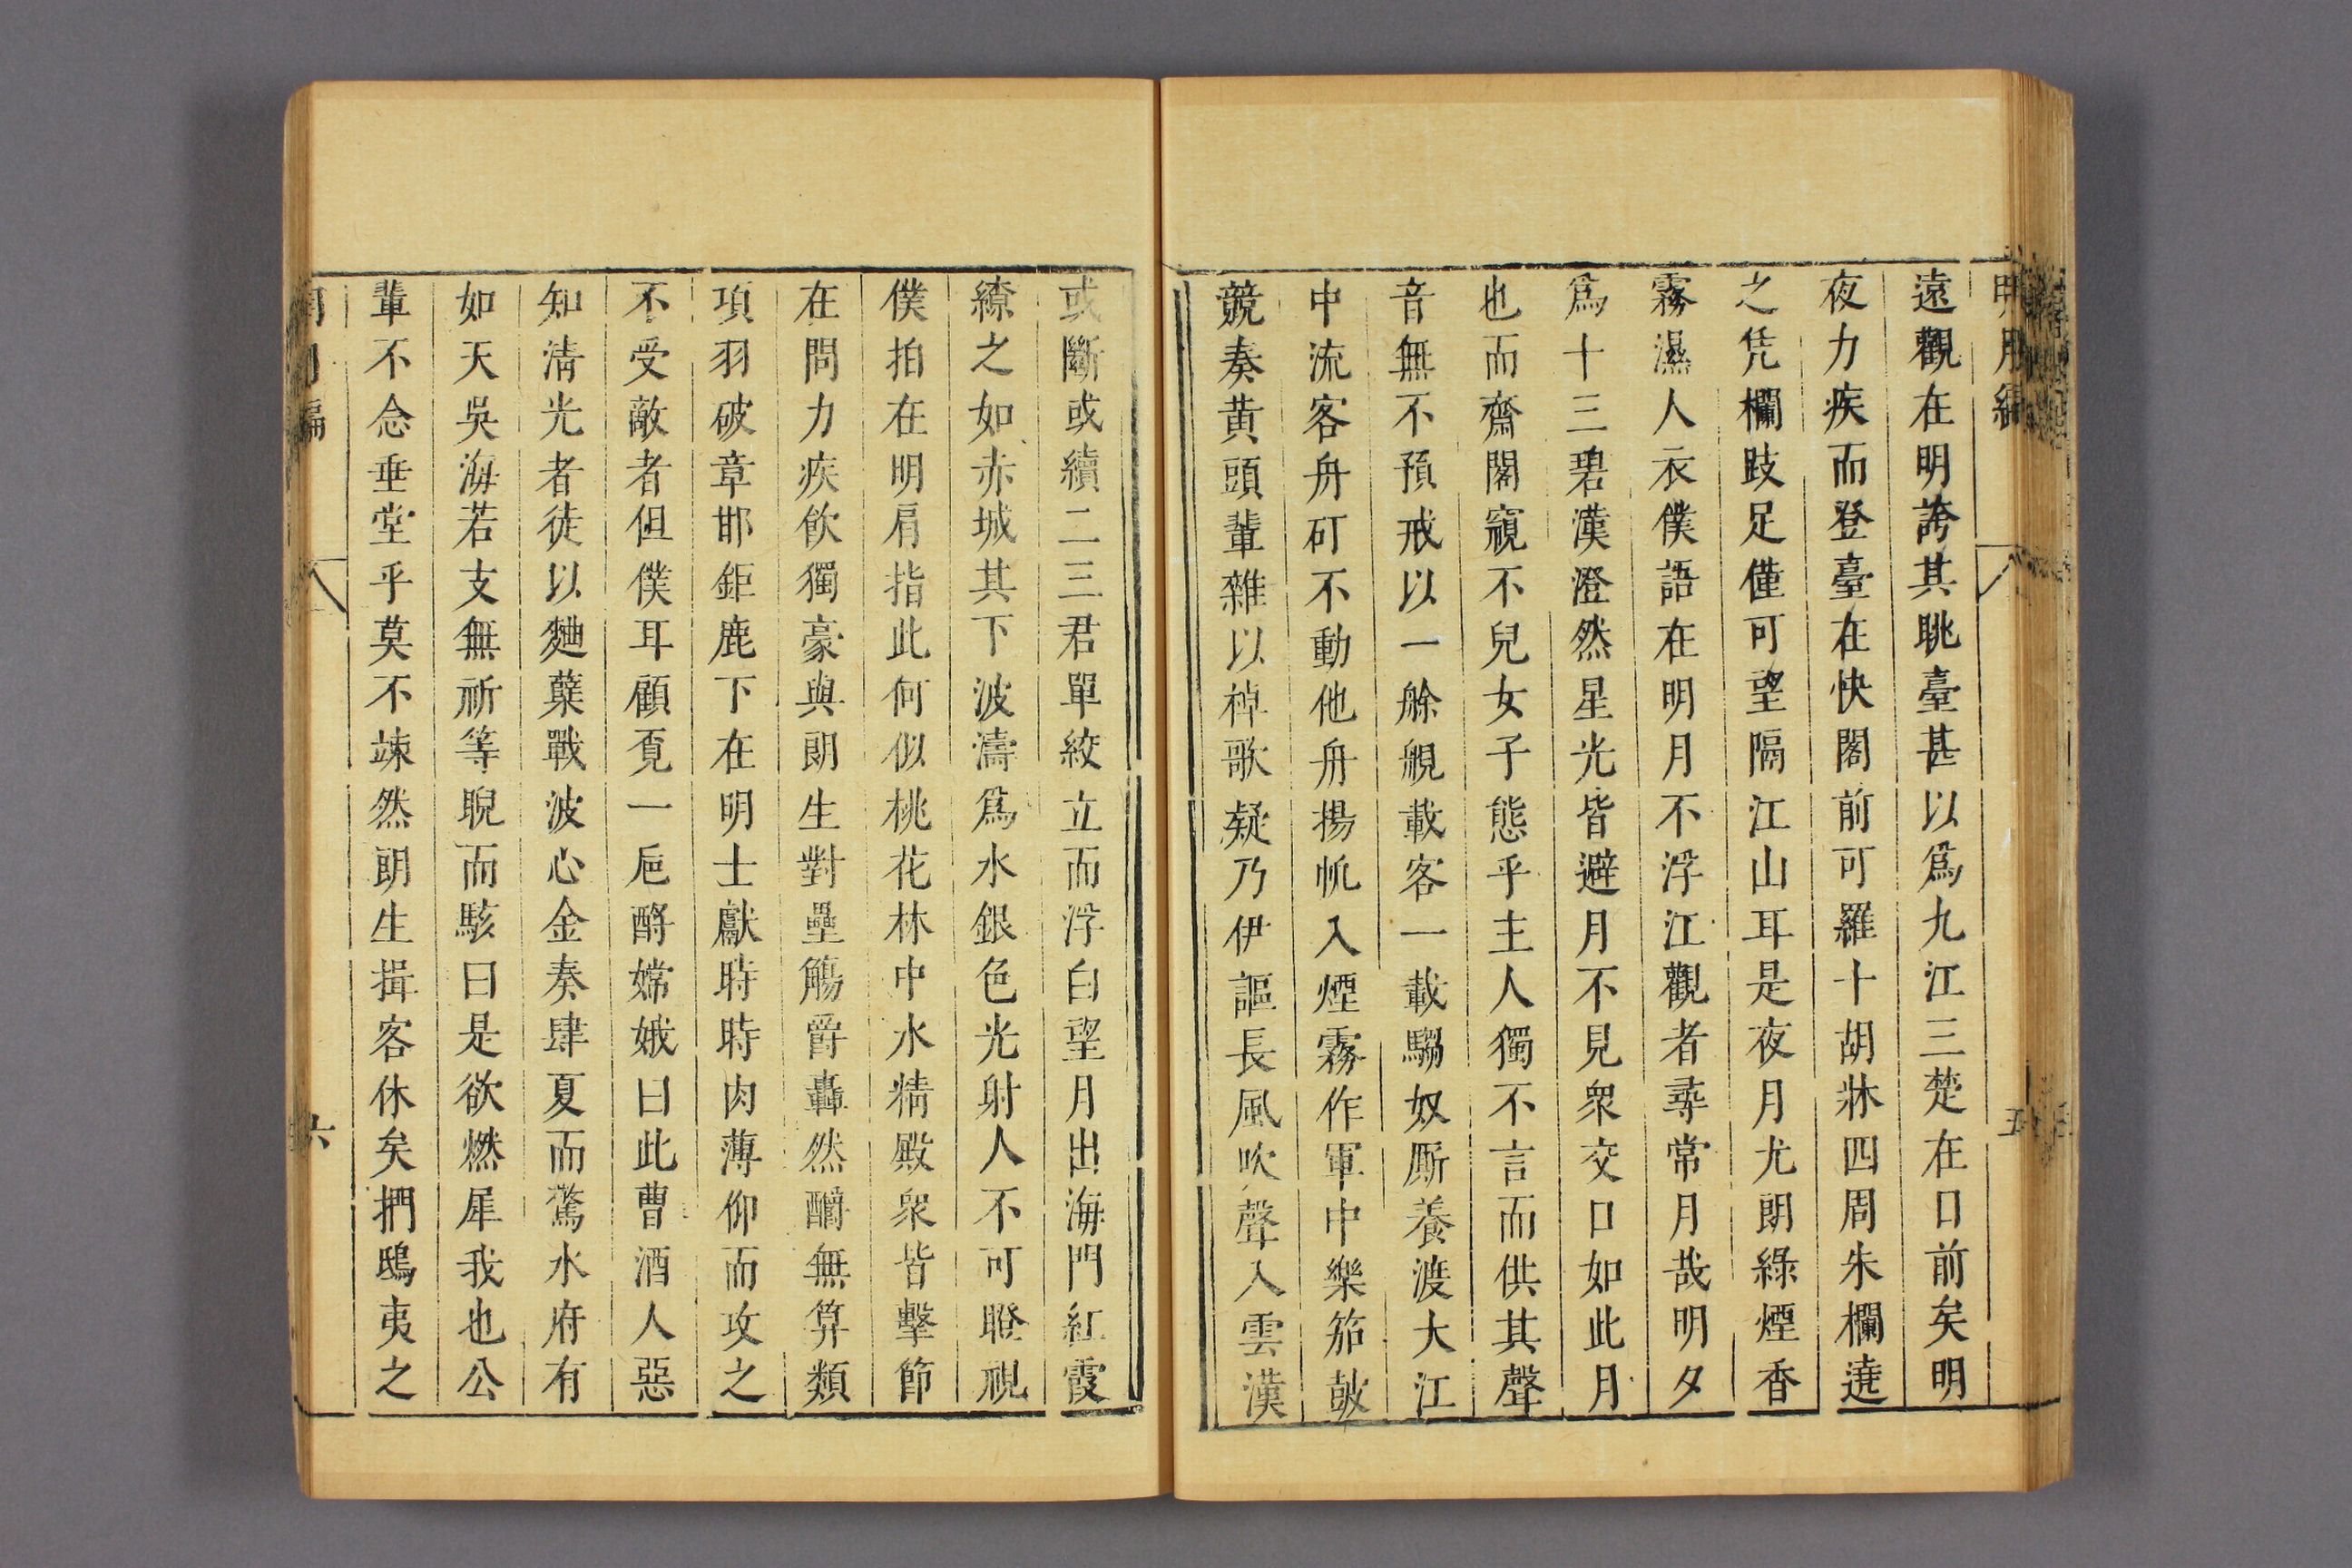 明月編
五
遠觀在明誇其眺臺甚以爲九江三楚在口前矣明
夜力疾而登臺在快閣前可羅十胡牀四周朱欄遶
之凭欄跂足僅可望隔江山耳是夜月尤朗綠煙香
霧濕人衣僕語在明月不浮江觀者尋常月哉明夕
爲十三碧漢澄然星光皆避月不見衆交口如此月
也而齋閣窺不兒女子態乎主人獨不言而供其聲
音無不預戒以一艅艎載客一載騶奴厮養渡大江
中流客舟矴不動他舟揚帆入煙霧作軍中樂笳皷
競奏黃頭輩雜以棹歌疑乃伊謳長風吹聲入雲漢
或斷或續二三君單絞立而浮白望月出海門紅霞
繚之如赤城其下波濤爲水銀色光射人不可瞪視
僕拍在明肩指此何似桃花林中水精殿衆皆擊節
在問力疾飲獨豪與朗生對壘觴爵轟然釂無算類
項羽破章邯鉅鹿下在明士獻時時肉薄仰而攻之
不受敵者但僕耳顧覓一巵酹嫦娥曰此曹酒人惡
知清光者徒以麯蘖戰波心金奏肆夏而驚水府有
如天吳海若支無祈等睨而駭曰是欲燃犀我也公
輩不念垂堂乎莫不竦然朗生揖客休矣捫鴟夷之
六